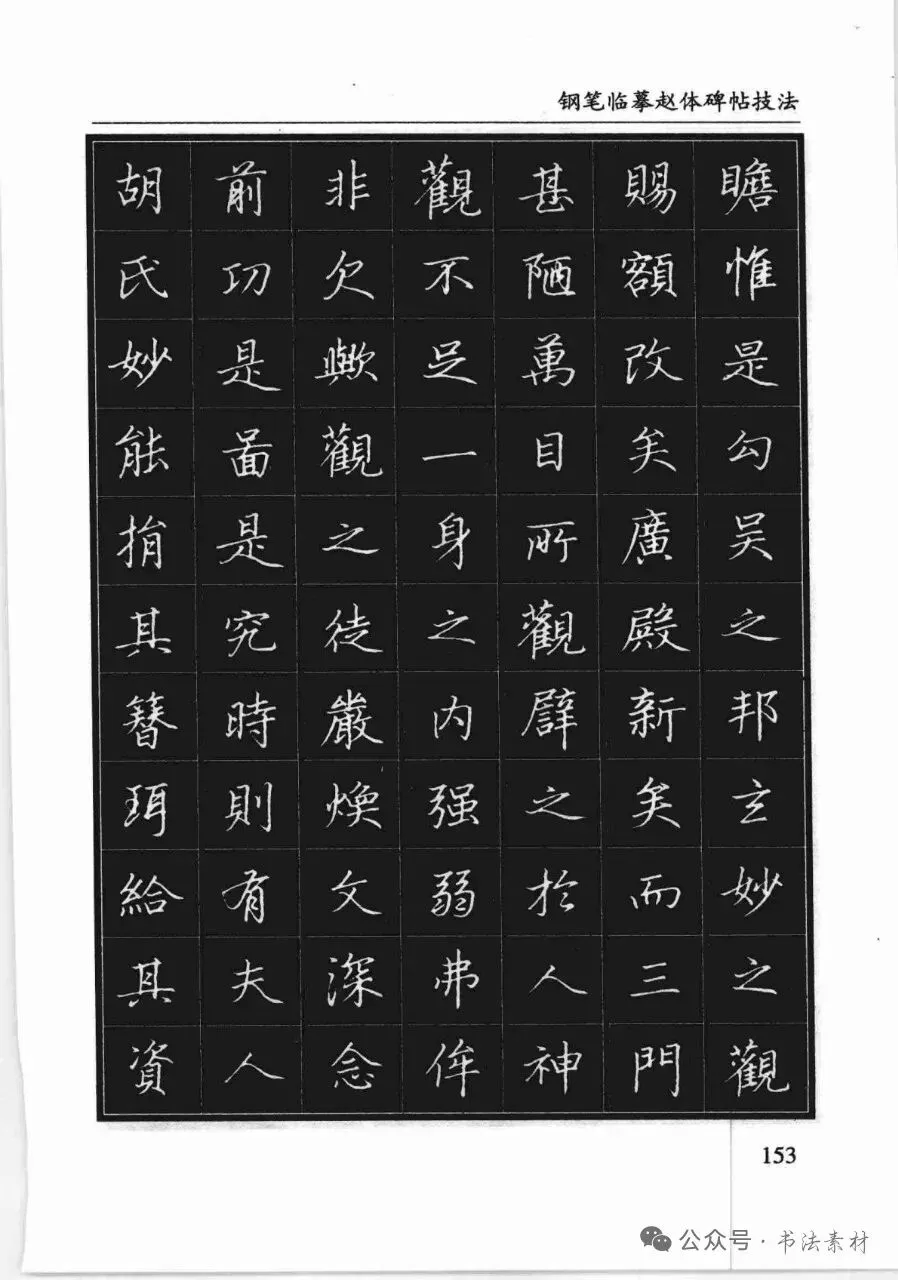 钢笔临摹赵体碑帖技法
瞻惟是勾吴之邦玄妙之觀
賜額改矣廣殿新矣而三門
甚陋萬目所觀辟之於人神
觀不足一身之内强弱弗侔
非欠歟觀之徒嚴焕文深念
前功是啚是究時則有夫人
胡氏妙能捐其簪珥給其資
153
公众号·书法素材